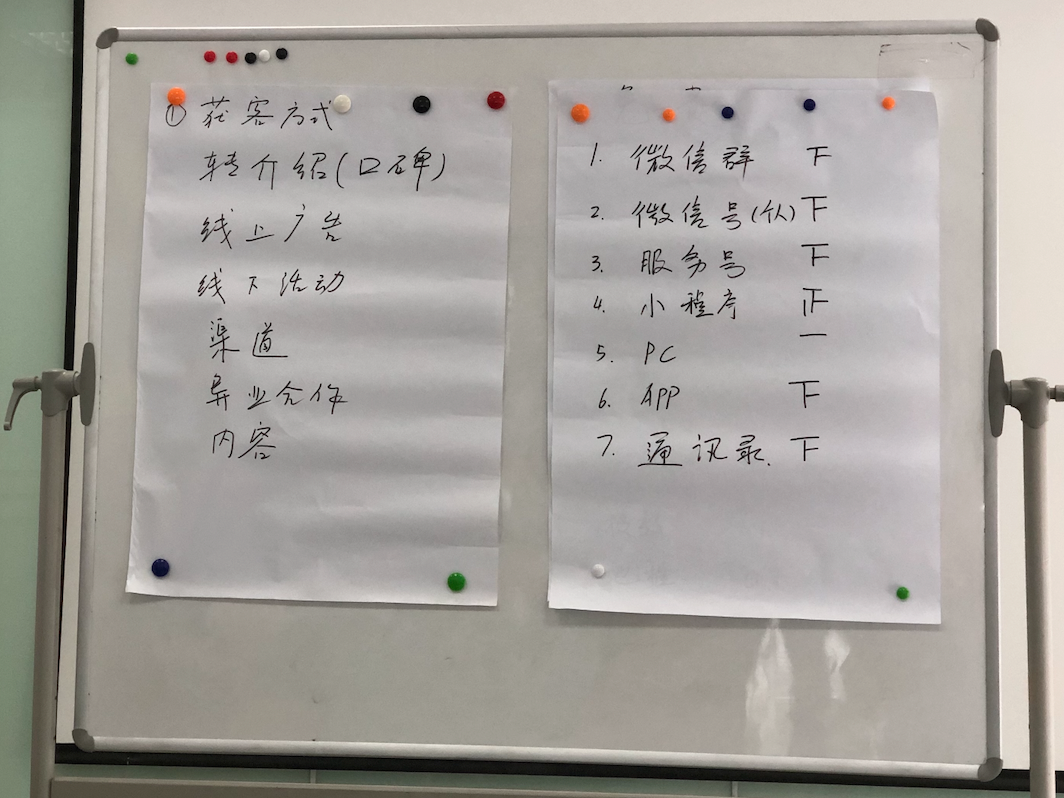 ① 获客方式
转介绍(口碑)
线上广告
线下活动
渠道
异业合作
内容
1. 微信群 下
2. 微信号(个人) 下
3. 服务号 下
4. 小程序 正
5. PC 一
6. APP 下
7. 通讯录. 下